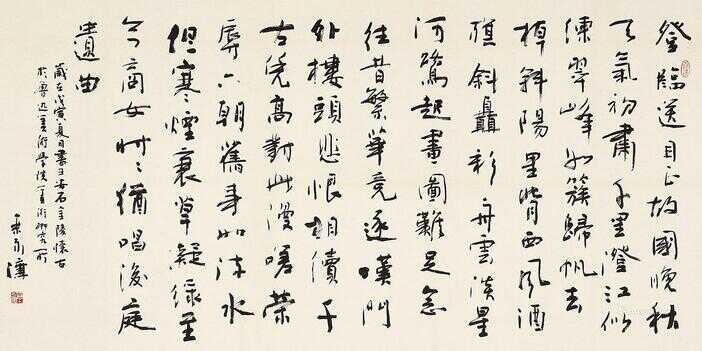 登臨送目正故國晚秋
天氣初肅千里澄江似
練翠峰如簇歸帆去
棹斜陽里背西風酒
旗斜矗彩舟雲淡星
河鷺起畫圖難足念
往昔繁華競逐嘆門
外樓頭悲恨相續千
古憑高對此漫嗟榮
辱六朝舊事如流水
但寒煙衰草凝綠至
今商女時時猶唱後庭
遺曲
歲在戊寅夏日書王安石金陵懷古
於魯迅美術學院美術研究所